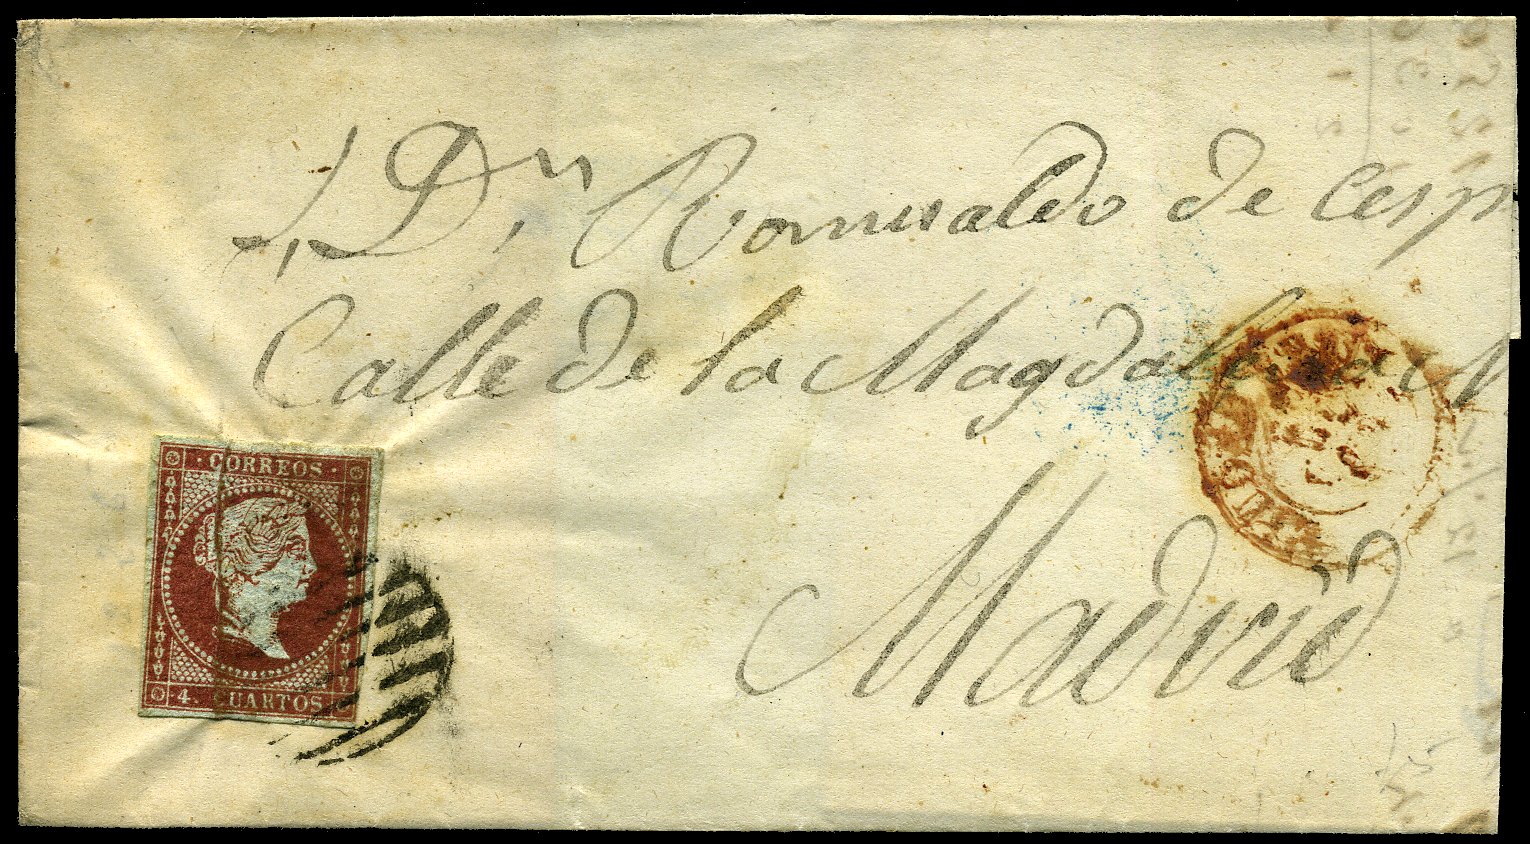 S, Dn. Romualdo de Cesp
Calle de la Magdalena
Madrid
CORREOS
4. CUARTOS